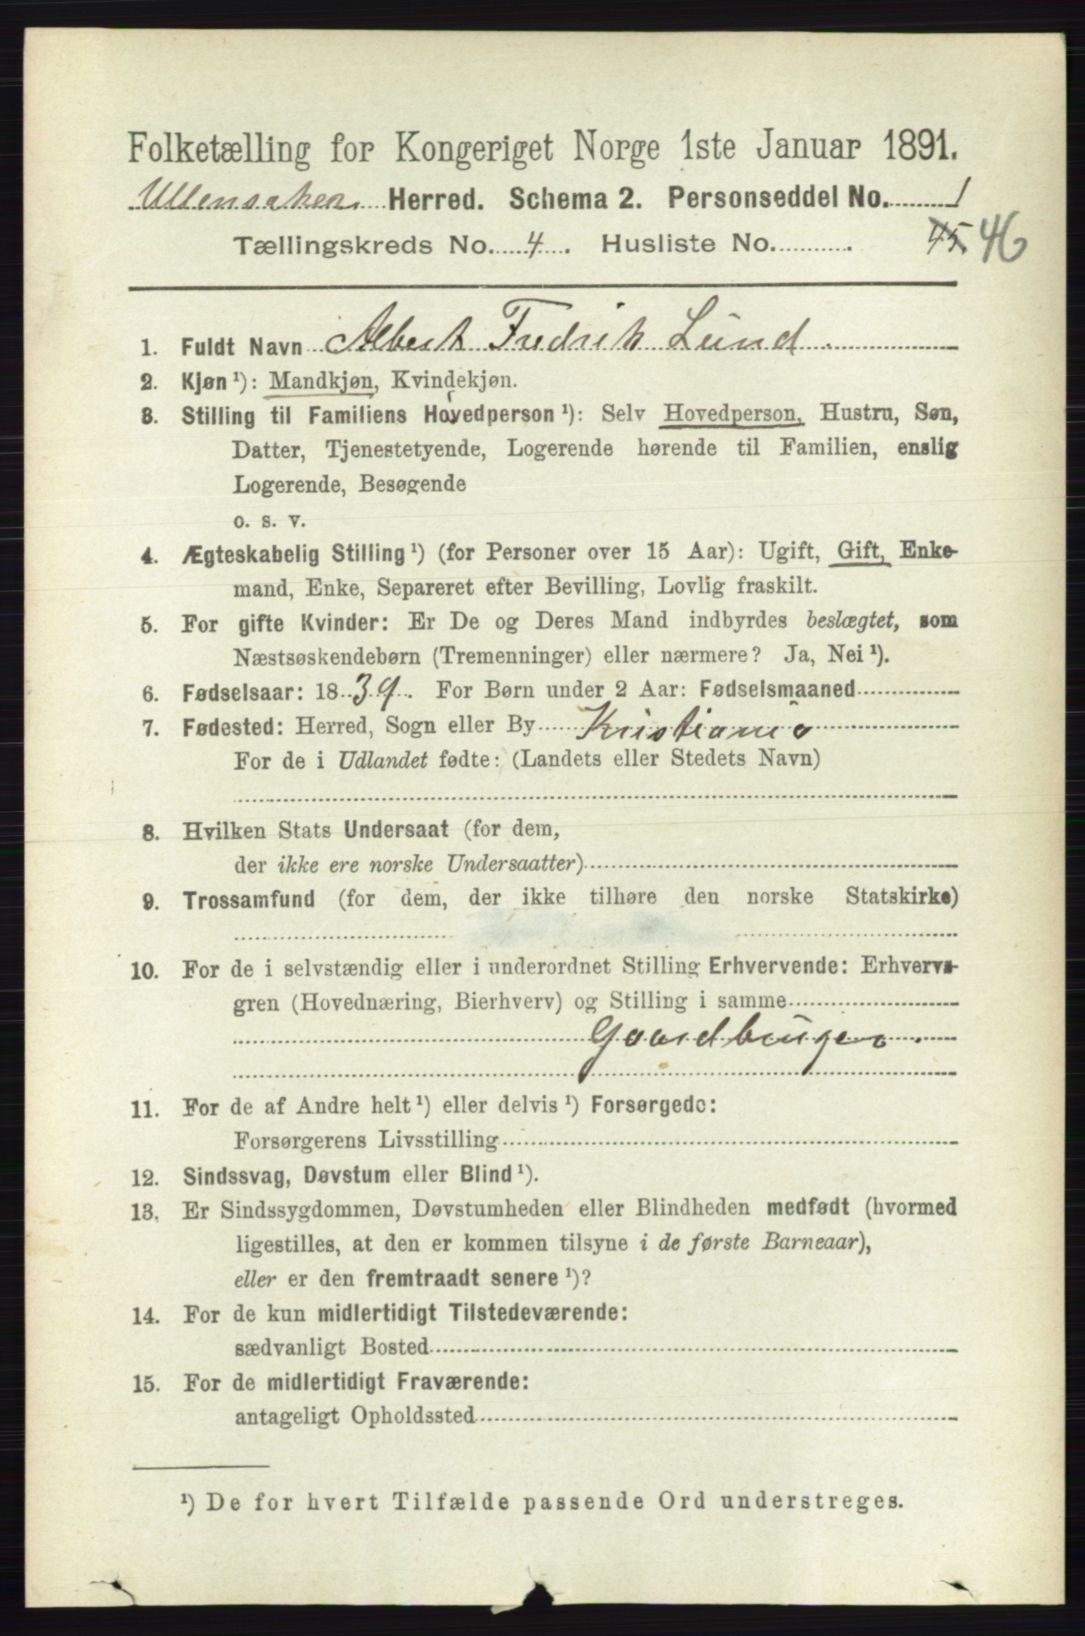 Folketælling for Kongeriget Norge 1ste Januar 1891.
Ullensaker Herred. Schema 2. Personseddel No. 1
Tællingskreds No. 4. Husliste No. 45 46
1. Fuldt Navn Albert Fredrik Lund.
2. Kjøn¹): Mandkjøn, Kvindekjøn.
3. Stilling til Familiens Hovedperson¹): Selv Hovedperson, Hustru, Søn,
Datter, Tjenestetyende, Logerende hørende til Familien, enslig
Logerende, Besøgende
o. s. v.
4. Ægteskabelig Stilling¹) (for Personer over 15 Aar): Ugift, Gift, Enke-
mand, Enke, Separeret efter Bevilling, Lovlig fraskilt.
5. For gifte Kvinder: Er De og Deres Mand indbyrdes beslægtet, som
Næstsøskendebørn (Tremenninger) eller nærmere? Ja, Nei¹).
6. Fødselsaar: 1839. For Børn under 2 Aar: Fødselsmaaned
7. Fødested: Herred, Sogn eller By Kristiania
For de i Udlandet fødte: (Landets eller Stedets Navn)
8. Hvilken Stats Undersaat (for dem,
der ikke ere norske Undersaatter)
9. Trossamfund (for dem, der ikke tilhøre den norske Statskirke)
10. For de i selvstændig eller i underordnet Stilling Erhvervende: Erhvervs-
gren (Hovednæring, Bierhverv) og Stilling i samme
Gaardbruger.
11. For de af Andre helt¹) eller delvis¹) Forsørgede:
Forsørgerens Livsstilling
12. Sindssvag, Døvstum eller Blind¹).
13. Er Sindssygdommen, Døvstumheden eller Blindheden medfødt (hvormed
ligestilles, at den er kommen tilsyne i de første Barneaar),
eller er den fremtraadt senere¹)?
14. For de kun midlertidigt Tilstedeværende:
sædvanligt Bosted
15. For de midlertidigt Fraværende:
antageligt Opholdssted
¹) De for hvert Tilfælde passende Ord understreges.